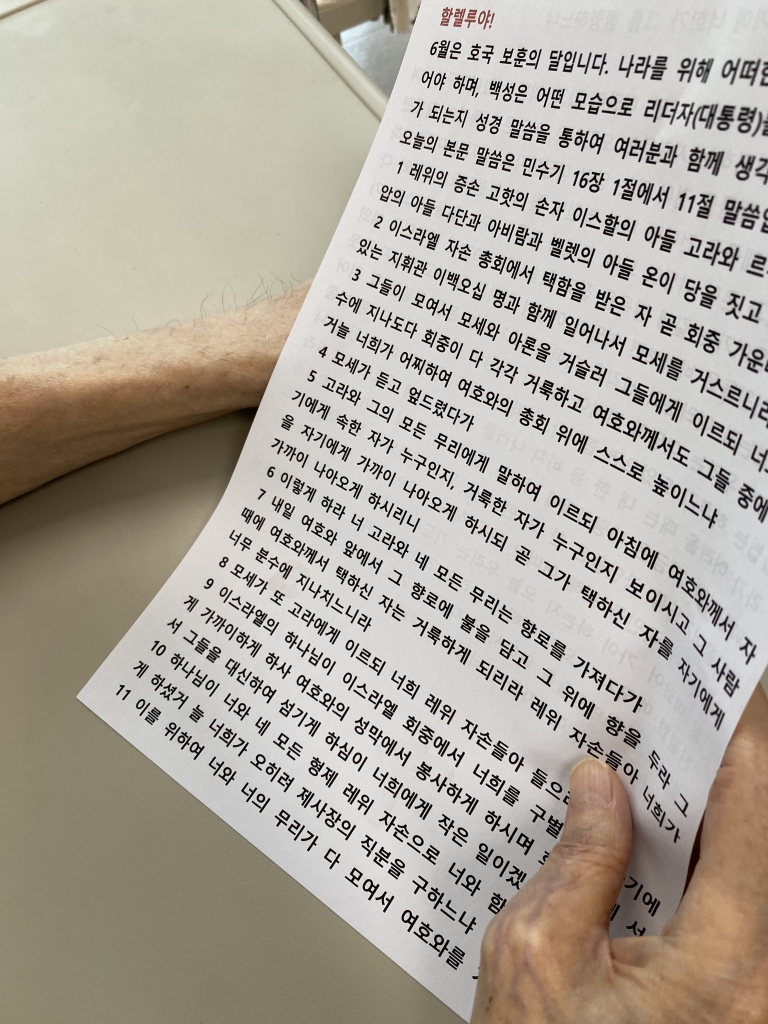 할렐루야!
6월은 호국 보훈의 달입니다. 나라를 위해 어떠한
어야 하며, 백성은 어떤 모습으로 리더자(대통령)를
가 되는지 성경 말씀을 통하여 여러분과 함께 생각
오늘의 본문 말씀은 민수기 16장 1절에서 11절 말씀입
1 레위의 증손 고핫의 손자 이스할의 아들 고라와 르
압의 아들 다단과 아비람과 벨렛의 아들 온이 당을 짓고
2 이스라엘 자손 총회에서 택함을 받은 자 곧 회중 가운데
있는 지휘관 이백오십 명과 함께 일어나서 모세를 거스르니라
3 그들이 모여서 모세와 아론을 거슬러 그들에게 이르되 너
수에 지나도다 회중이 다 각각 거룩하고 여호와께서도 그들 중에
거늘 너희가 어찌하여 여호와의 총회 위에 스스로 높이느냐
4 모세가 듣고 엎드렸다가
5 고라와 그의 모든 무리에게 말하여 이르되 아침에 여호와께서 자
기에게 속한 자가 누구인지, 거룩한 자가 누구인지 보이시고 그 사람
을 자기에게 가까이 나아오게 하시되 곧 그가 택하신 자를 자기에게
가까이 나아오게 하시리니
6 이렇게 하라 너 고라와 네 모든 무리는 향로를 가져다가
7 내일 여호와 앞에서 그 향로에 불을 담고 그 위에 향을 두라 그
때에 여호와께서 택하신 자는 거룩하게 되리라 레위 자손들아 너희가
너무 분수에 지나치느니라
8 모세가 또 고라에게 이르되 너희 레위 자손들아 들으라
9 이스라엘의 하나님이 이스라엘 회중에서 너희를 구별 기에
게 가까이하게 하사 여호와의 성막에서 봉사하게 하시며 회 에 서
서 그들을 대신하여 섬기게 하심이 너희에게 작은 일이겠
10 하나님이 너와 네 모든 형제 레위 자손으로 너와 함
게 하셨거늘 너희가 오히려 제사장의 직분을 구하느냐
11 이를 위하여 너와 너의 무리가 다 모여서 여호와를